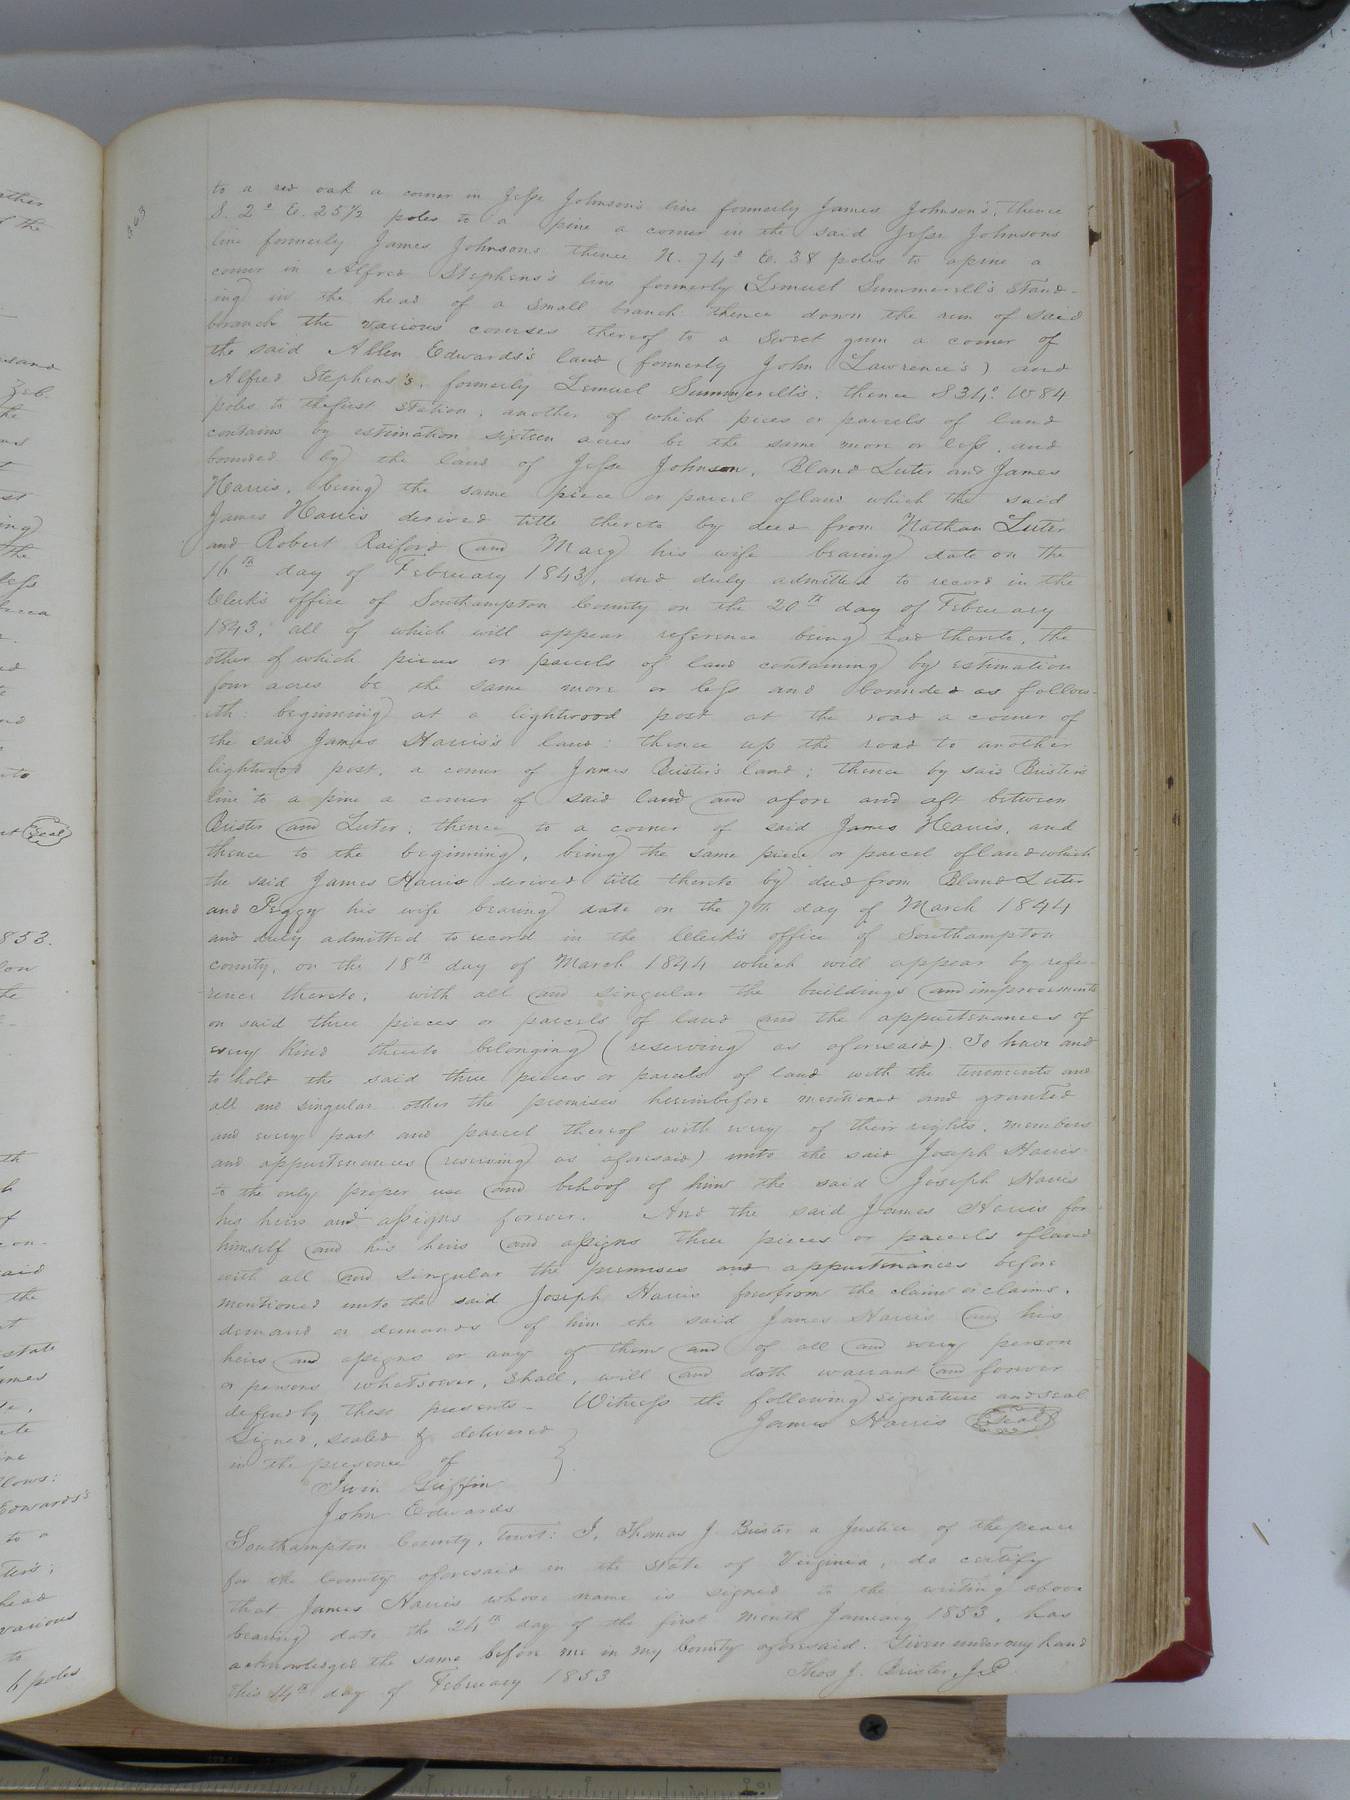 363
to a red oak a corner in Jesse Johnson's line formerly James Johnson's, thence
S. 2° E. 25½ poles to a pine a corner in the said Jesse Johnsons
line formerly James Johnsons thence N. 74° E. 38 poles to a pine a
corner in Alfred Stephens's line formerly Lemuel Summerell's stand-
ing in the head of a small branch thence down the run of said
branch the various courses thereof to a Sweet gum a corner of
the said Allen Edwards's land (formerly John Lawrence's) and
Alfred Stephens's, formerly Lemuel Summerell's; thence S 34° W 84
poles to the first station; another of which pieces or parcels of land
contains by estimation sixteen acres be the same more or less, and
bounded by the land of Jesse Johnson, Bland Luter and James
Harris, being the same piece or parcel of land which the said
James Harris derived title thereto by deed from Nathan Luter
and Robert Raiford and Mary his wife bearing date on the
16th day of February 1843, and duly admitted to record in the
Clerk's office of Southampton County on the 20th day of February
1843, all of which will appear reference being had thereto, the
other of which pieces or parcels of land containing by estimation
four acres be the same more or less and bounded as follow-
eth: beginning at a lightwood post at the road a corner of
the said James Harris's land: thence up the road to another
lightwood post, a corner of James Brister's land; thence by said Bristers
line to a pine a corner of said land and afore and aft between
Brister and Luter, thence to a corner of said James Harris, and
thence to the beginning, being the same piece or parcel of land which
the said James Harris derived title thereto by deed from Bland Luter
and Peggy his wife bearing date on the 7th day of March 1844
and duly admitted to record in the Clerk's office of Southampton
county, on the 18th day of March 1844 which will appear by refe-
rence thereto, with all and singular the buildings and improvements
on said three pieces or parcels of land and the appurtenances of
every kind thereto belonging (reserving as aforesaid). To have and
to hold the said three pieces or parcels of land with the tenements and
all and singular other the premises hereinbefore mentioned and granted
and every part and parcel thereof with every of their rights, members
and appurtenances (reserving as aforesaid) unto the said Joseph Harris
to the only proper use and behoof of him the said Joseph Harris
his heirs and assigns forever. And the said James Harris for
himself and his heirs and assigns three pieces or parcels of land
with all and singular the premises and appurtenances before
mentioned unto the said Joseph Harris free from the claim or claims,
demand or demands of him the said James Harris and his
heirs and assigns or any of them and of all and every person
or persons whatsoever, shall, will and doth warrant and forever
defend by these presents – Witness the following signature and seal
James Harris Seal
Signed, sealed & delivered
in the presence of
Irvin Griffin
John Edwards
Southampton County, towit: I, Thomas J. Brister a Justice of the peace
for the County aforesaid in the State of Virginia, do certify
that James Harris whose name is signed to the writing above
bearing date the 24th day of the first month January 1853, has
acknowledged the same before me in my County aforesaid. Given under my hand
this 14th day of February 1853 Thos J. Brister J.P.